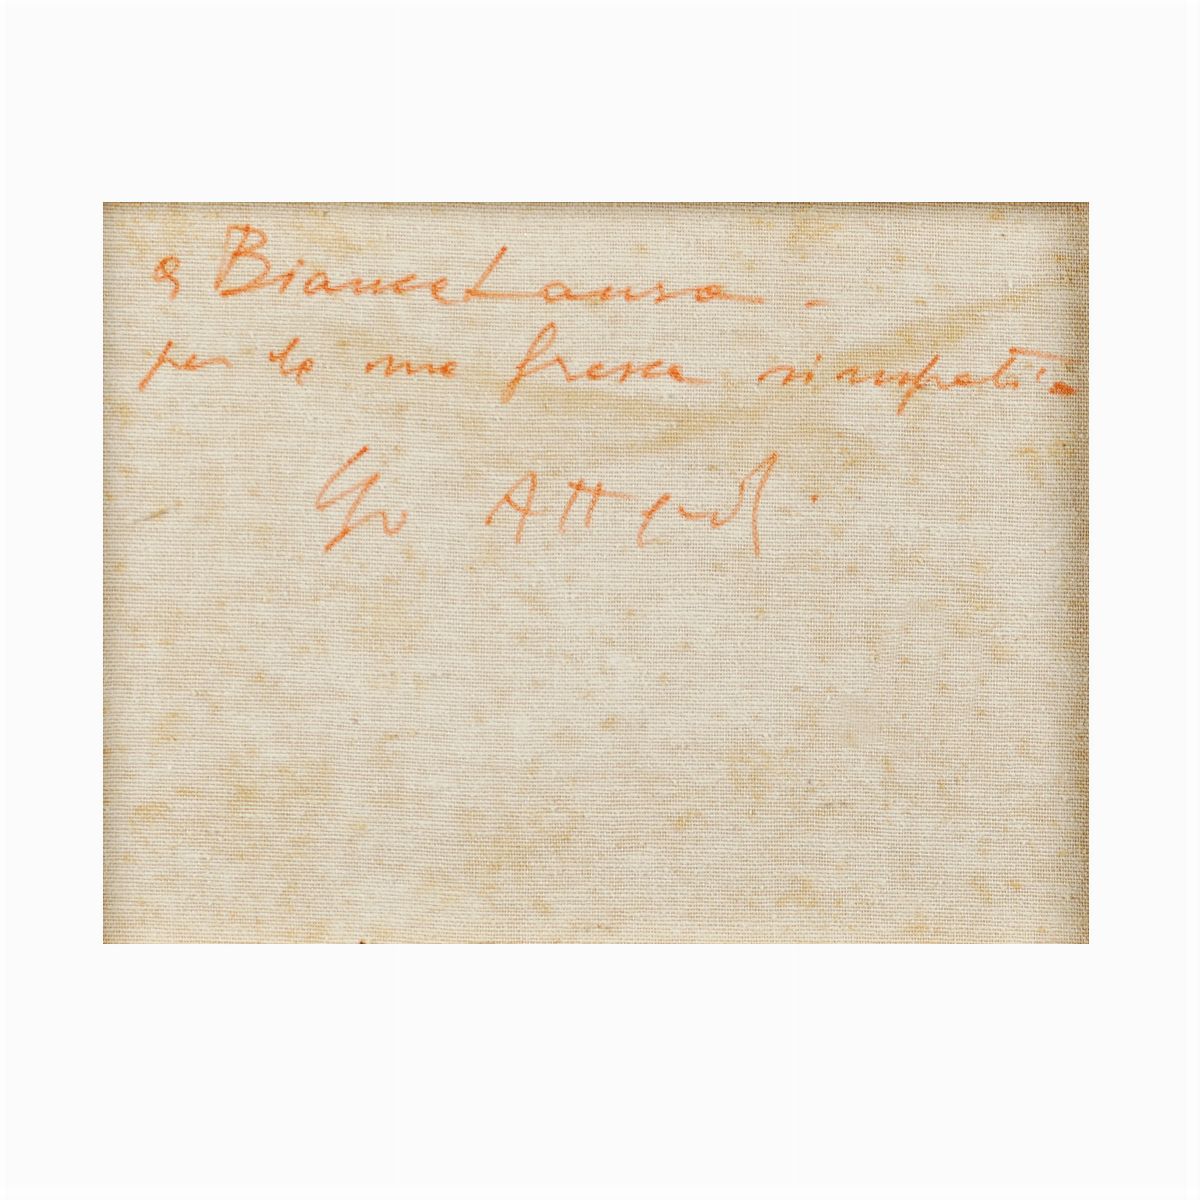 a BiancaLaura -
per la sua fresca simpatia
Ugo Attardi